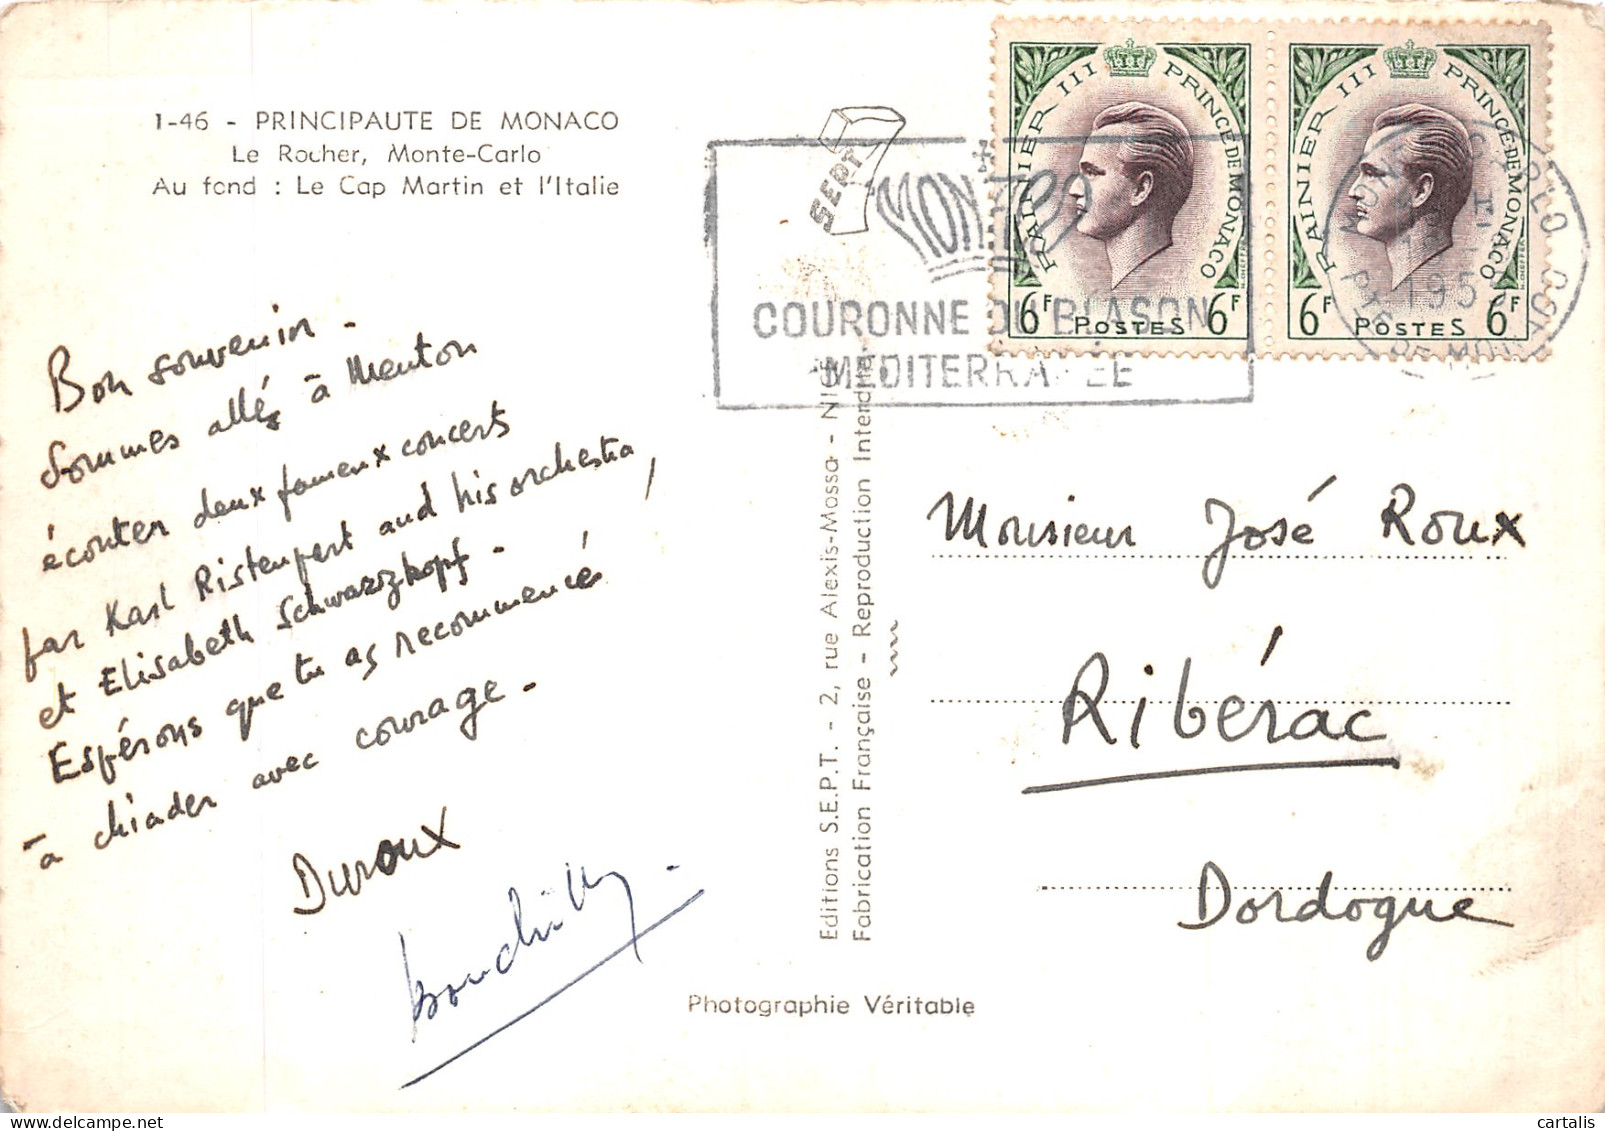 1-46 - PRINCIPAUTE DE MONACO
Le Rocher, Monte-Carlo
Au fond : Le Cap Martin et l'Italie
Bon souvenir -
Sommes allés à Menton
écouter deux fameux concerts
par Karl Ristenpart and his orchestra,
et Elisabeth Schwarzkopf -
Espérons que tu as recommencé
à chiader avec courage -
Duroux
SEPT
Editions S.E.P.T. - 2, rue Alexis-Mossa - NICE
Fabrication Française - Reproduction Interdite
Photographie Véritable
MONACO
COURONNE DU BLASON
MEDITERRANEE
RAINIER III PRINCE DE MONACO
6F POSTES 6F
RAINIER III PRINCE DE MONACO
6F POSTES 6F
MONTE-CARLO
PTE DE MONACO
Monsieur José Roux
Ribérac
Dordogne
cartalis